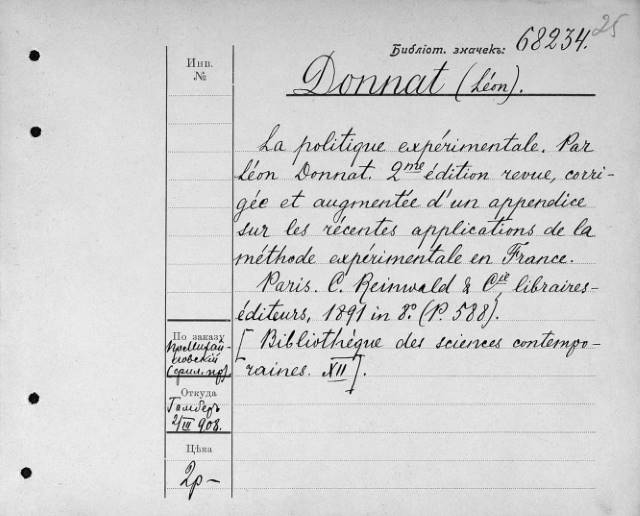 25
Библiот. значекъ: 68234.
Инв.
№
Donnat (Léon).
La politique expérimentale. Par
Léon Donnat. 2me édition revue, corri-
gée et augmentée d'un appendice
sur les récentes applications de la
méthode expérimentale en France.
Paris. C. Reinwald & Cie, libraires-
éditeurs, 1891 in 8º. (P. 588).
[Bibliothèque des sciences contempo-
raines. XII].
По заказу
Откуда
2/III 908.
Цѣна
2р-